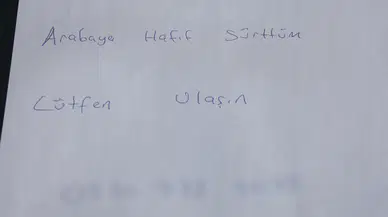 Arabaya Hafif Sürttüm
Lütfen Ulaşın